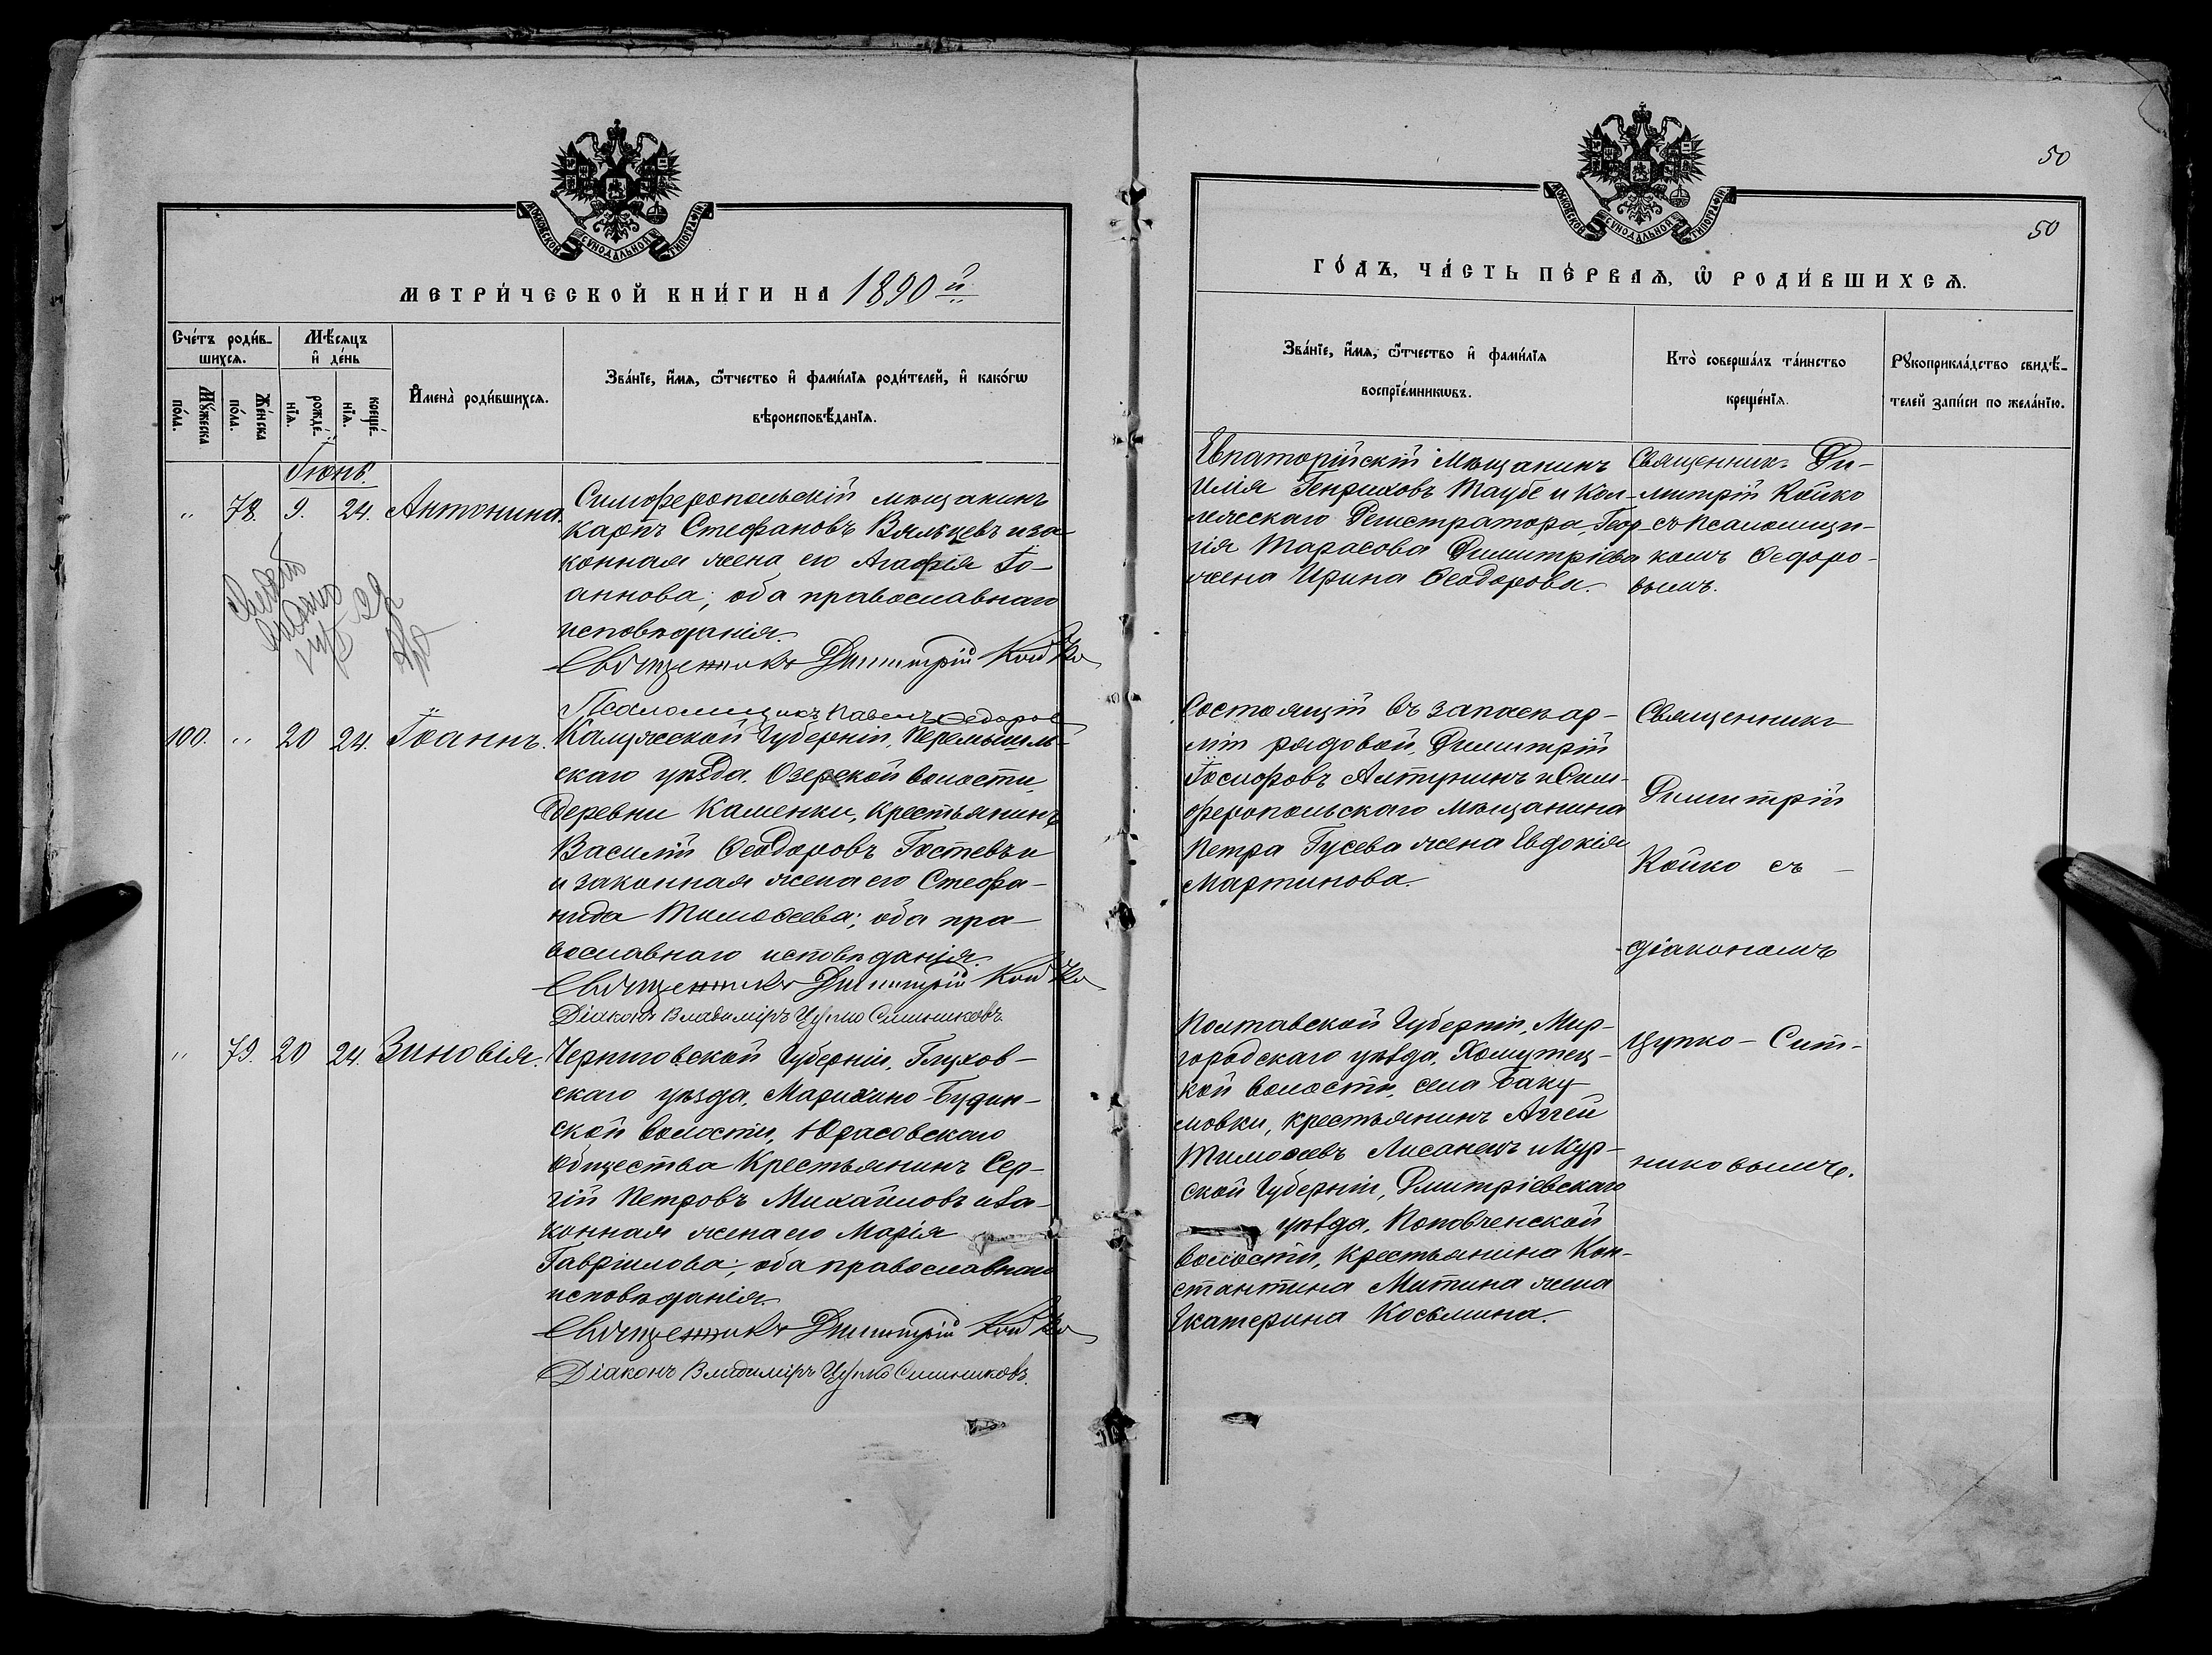 МОСКОВСКОЙ СѴНОДАЛЬНОЙ ТИПОГРАФІИ
МЕТРИ́ЧЕСКОЙ КНИ́ГИ НА 1890 й
Сче́тъ роди́в-
шихсѧ.
Мѣ́сѧцъ
и҆ де́нь
Мꙋ́жеска
по́ла.
Же́нска
по́ла.
рожде́-
нїѧ.
креще́-
нїѧ.
И҆мена̀ роди́вшихсѧ.
Зва́нїе, и҆́мѧ, ѻ҆́тчество и҆ фами́лїѧ роди́телей, и҆ како́гѡ
вѣроисповѣ́данїѧ.
Іюнь.
" 78. 9. 24. Антонина.
Симферопольскій мѣщанинъ
Карпъ Стефановъ Вяльцевъ и за
конная жена его Агафія Іо-
аннова; оба православнаго
исповѣданія.
Священникъ Димитрій Койко
Псаломщикъ Павелъ Ѳедоров
100. " 20 24. Іоаннъ.
Калужской Губерніи, Перемышль-
скаго уѣзда, Озерской волости,
деревни Каменки, крестьянинъ
Василій Ѳеодоровъ Гостевъ и
и законная жена его Стефа-
нида Тимоѳеева; оба пра-
вославнаго исповѣданія.
Священникъ Димитрій Койко
Діаконъ Владиміръ Цупко Ситниковъ.
" 79. 20 24. Зиновія.
Черниговской Губерніи, Глухов-
скаго уѣзда, Марчихино-Будин-
ской волости, Юрасовскаго
общества крестьянинъ Сер-
гій Петровъ Михайловъ и за-
конная жена его Марія
Гавріилова; оба православнаго
исповѣданія.
Священникъ Димитрій Койко
Діаконъ Владиміръ Цупко Ситниковъ.
50
50
МОСКОВСКОЙ СѴНОДАЛЬНОЙ ТИПОГРАФІИ
ГО́ДЪ, ЧА́СТЬ ПЕ́РВАѦ, Ѽ РОДИ́ВШИХСѦ.
Зва́нїе, и҆́мѧ, ѻ҆́тчество и҆ фами́лїѧ
воспрїе́мникѡвъ.
Кто̀ соверша́лъ та́инство
креще́нїѧ.
Рꙋкоприкла́дство свидѣ́-
телей за́писи по жела́нїю.
Евпаторійскій Мѣщанинъ
Илія Генриховъ Таубе и Кол-
лежскаго Регистратора, Геор-
гія Тарасова Димитріева
жена Ирина Ѳеодорова.
Священникъ Ди-
митрій Койко
съ псаломщи-
комъ Ѳедоро-
вымъ.
Состоящій въ запасѣ ар-
міи рядовой, Димитрій
Іосифовъ Алтунинъ и Сим-
феропольскаго мѣщанина
Петра Гусева жена Евдокія
Мартинова.
Священникъ
Димитрій
Койко съ -
діакономъ
Цупко-Сит-
никовымъ.
Полтавской Губерніи, Мир-
городскаго уѣзда, Хомутец-
кой волости, села Баку-
мовки, крестьянинъ Аггей
Тимоѳеевъ Лисанецъ и Кур-
ской Губерніи, Дмитріевскаго
уѣзда, Поповченской
волости, крестьянина Кон-
стантина Митина жена
Екатерина Косьмина.